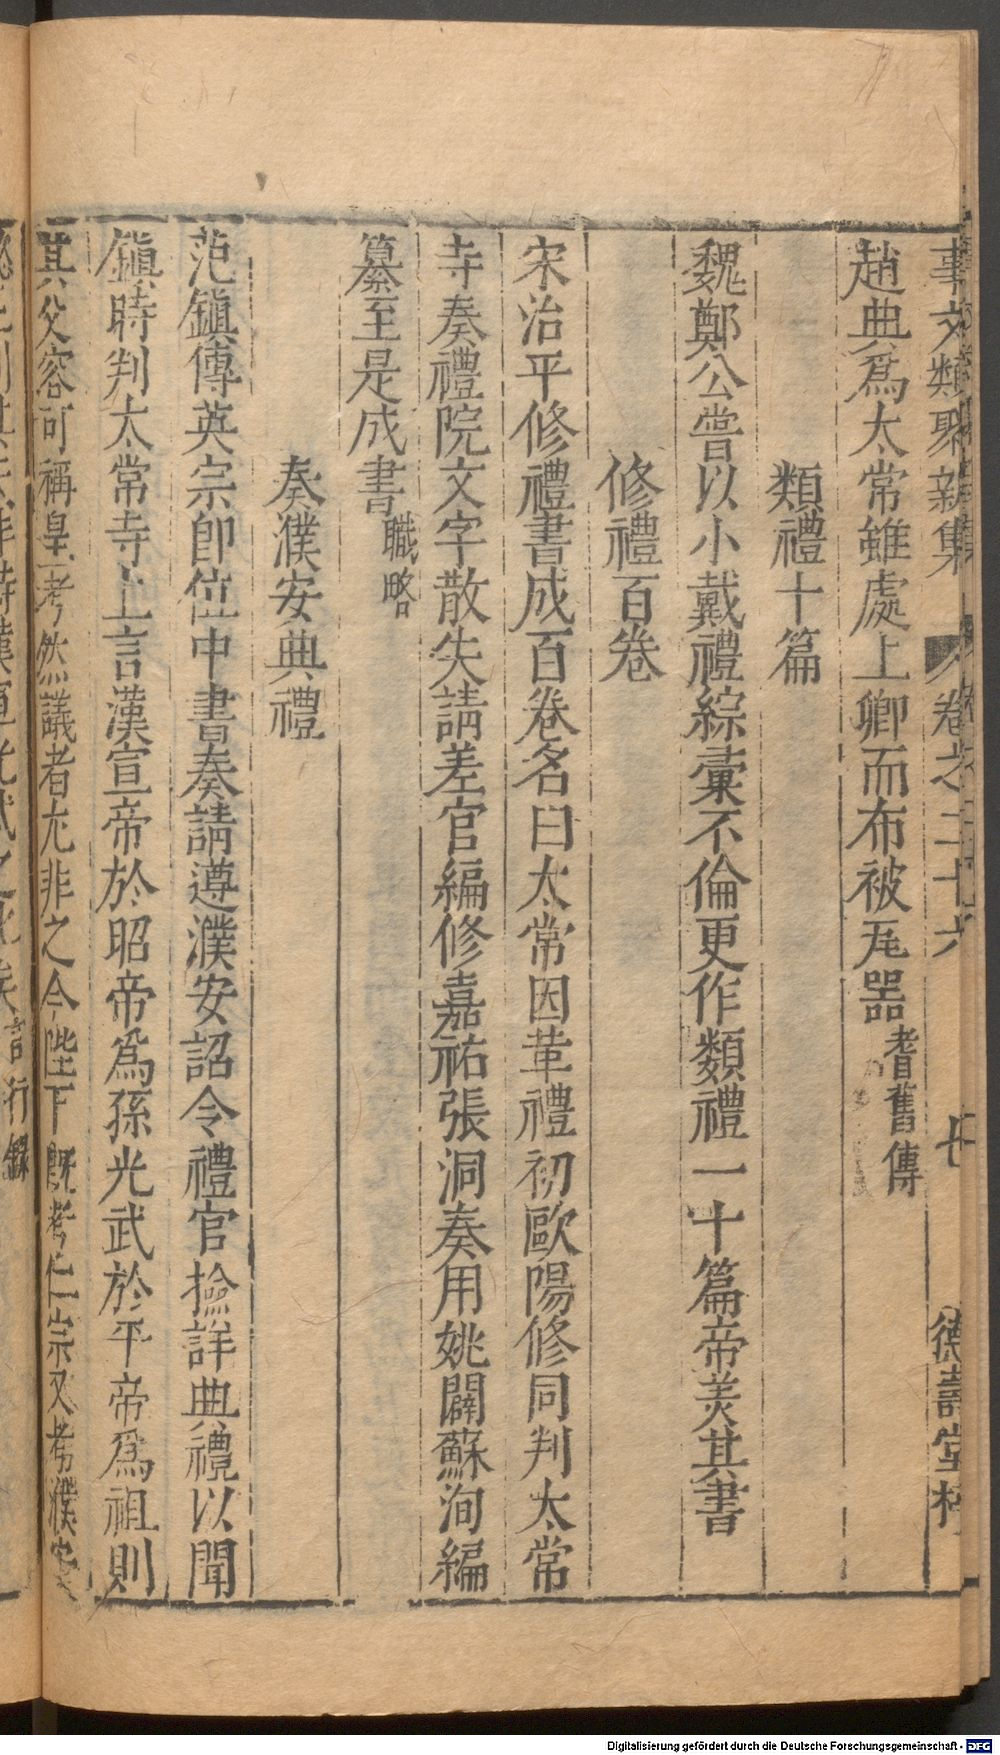 事文類聚新集 卷之二十六 七 德壽堂梓
趙典爲太常雖處上卿而布被瓦器耆舊傳
類禮十篇
魏鄭公嘗以小戴禮綜彙不倫更作類禮一十篇帝美其書
修禮百卷
宋治平修禮書成百卷名曰太常因革禮初歐陽修同判太常
寺奏禮院文字散失請差官編修嘉祐張洞奏用姚闢蘇洵編
纂至是成書職略
奏濮安典禮
范鎭傳英宗卽位中書奏請遵濮安詔令禮官撿詳典禮以聞
鎭時判太常寺上言漢宣帝於昭帝爲孫光武於平帝爲祖則
其父容可稱皇考然議者尤非之今陛下旣考仁宗又考濮安
言行錄
Digitalisierung gefördert durch die Deutsche Forschungsgemeinschaft - DFG